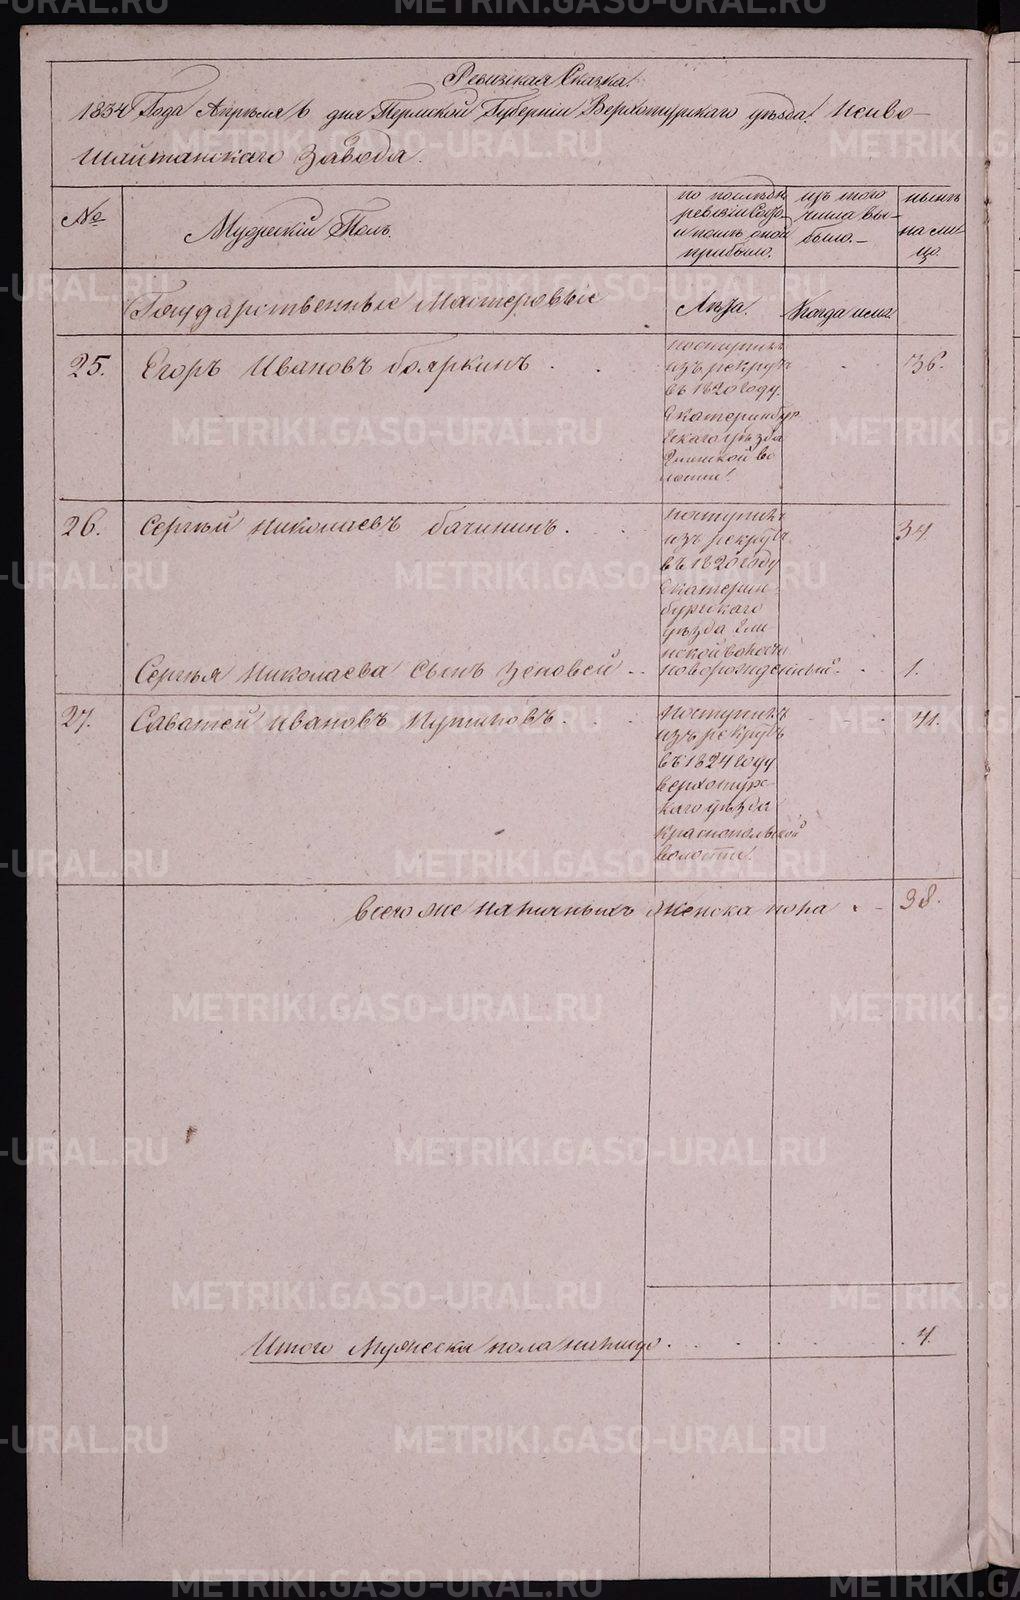 Ревизская Сказка.
1834 Года Апреля 6 дня Пермской Губернии Верхотурскаго уезда. Нейво-
Шайтанскаго Завода.
№
Мужеский Полъ.
по последн.
ревизии состо-
и после оной
прибыло.
изъ того
числа вы-
было.
ныне
на ли-
цо.
Государственные Мастеровые
Лета.
Когда именн.
25.
Егоръ Ивановъ бояркинъ
поступилъ
изъ рекрутъ
въ 1820 году.
Екатеринбур
скаго уезда
волости.
36.
26.
Сергей Николаевъ бачининъ.
поступилъ
изъ рекрутъ
въ 1820 году
Екатерин-
бурскаго
уезда
волости
34
Сергея Николаева сынъ Зеновей
новорожденный.
1.
27.
Саватей Ивановъ Путиловъ.
поступилъ
изъ рекрутъ
въ 1824 году
верхотурс-
каго уезда
краснопольской
волости.
41.
всего же наличныхъ женска пола
38.
Итого Мужеска пола налицо
4.
METRIKI.GASO-URAL.RU